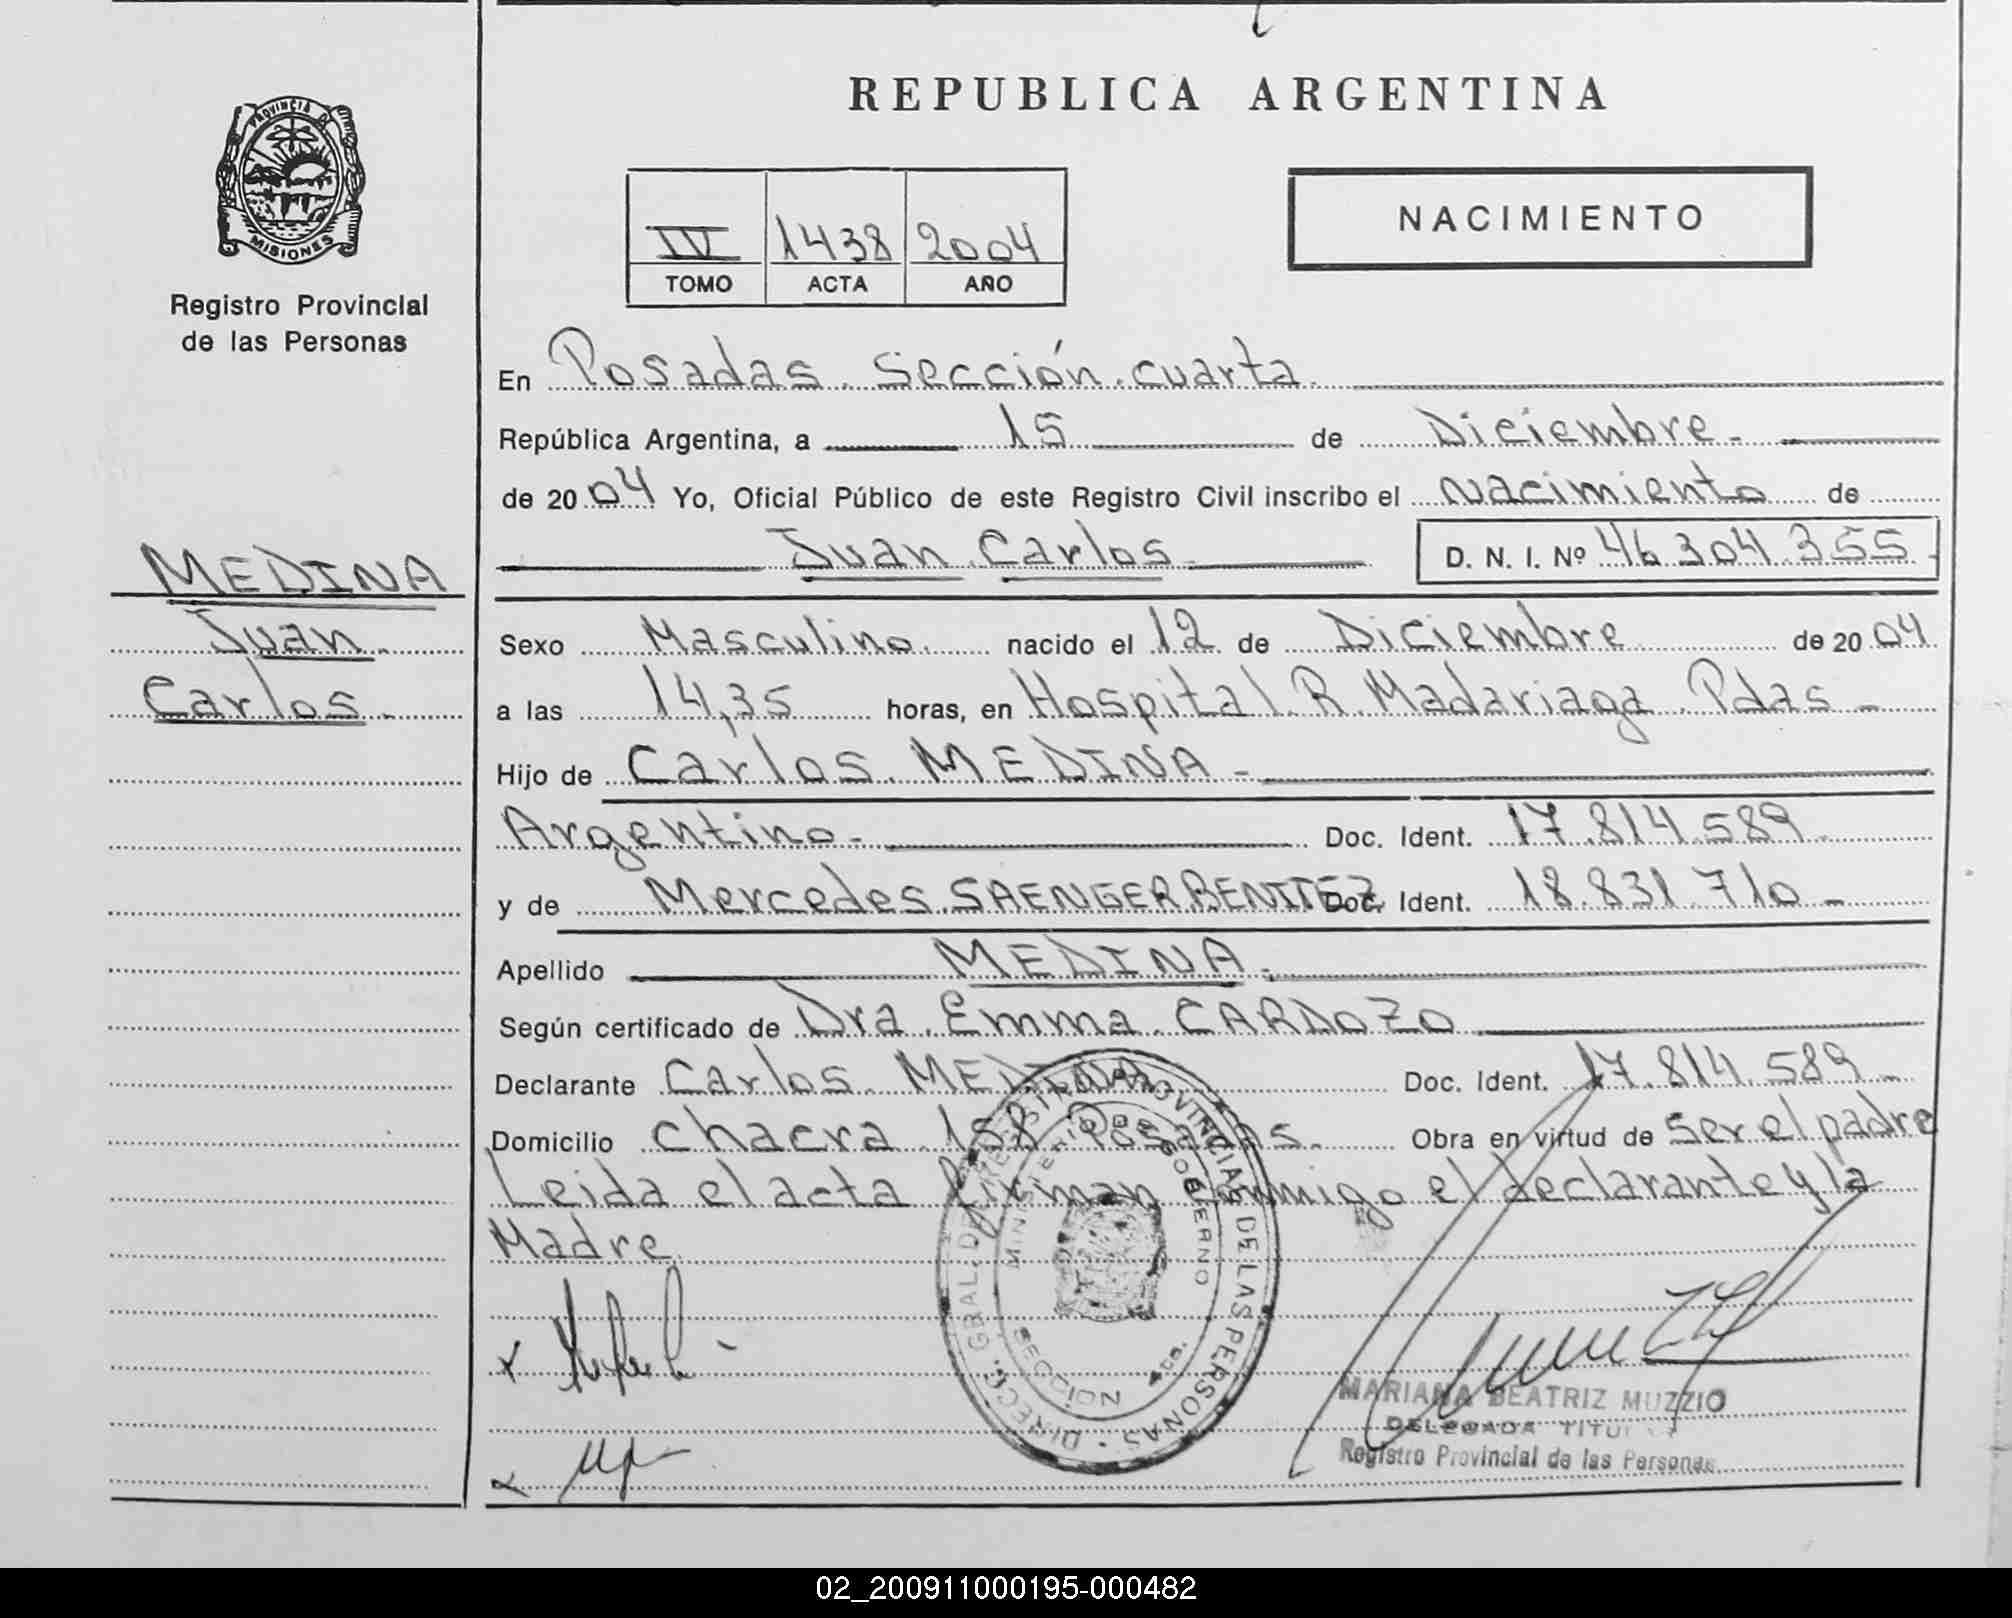 REPUBLICA ARGENTINA
PROVINCIA DE
MISIONES
Registro Provincial
de las Personas
IV 1438 2004
TOMO ACTA AÑO
NACIMIENTO
MEDINA
Juan
Carlos
En Posadas. Sección cuarta.
República Argentina, a 15 de Diciembre.
de 2004 Yo, Oficial Público de este Registro Civil inscribo el nacimiento de
Juan Carlos D. N. I. Nº 46.304.355
Sexo Masculino. nacido el 12 de Diciembre de 2004
a las 14,35 horas, en Hospital R. Madariaga. Pdas
Hijo de Carlos MEDINA
Argentino. Doc. Ident. 17.814.589
y de Mercedes SAENGER BENITEZ Doc. Ident. 18.831.710
Apellido MEDINA.
Según certificado de Dra. Emma CARDOZO
Declarante Carlos MEDINA Doc. Ident. 17.814.589
Domicilio chacra 158 Posadas. Obra en virtud de ser el padre
Leida el acta firman conmigo el declarante y la
Madre
DIRECC. GRAL. DE REGISTRO PROVINCIAL DE LAS PERSONAS
MINISTERIO DE GOBIERNO
SECCION 4ta.
MARIANA BEATRIZ MUZZIO
DELEGADA
Registro Provincial de las Personas
02_200911000195-000482